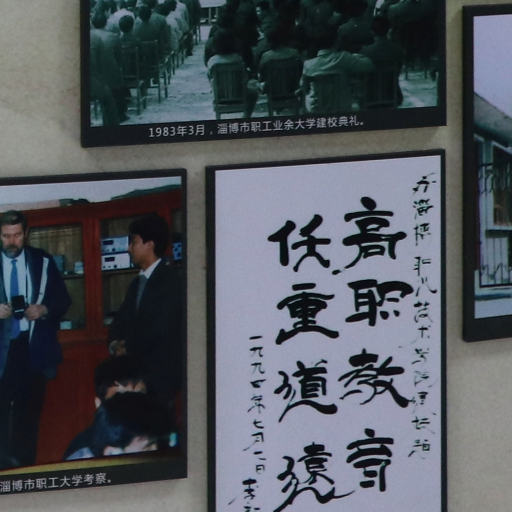 1983年3月，淄博市职工业余大学建校典礼。
淄博市职工大学考察。
为淄博职业技术学院建校题
高职教育
任重道远
一九九四年七月一日